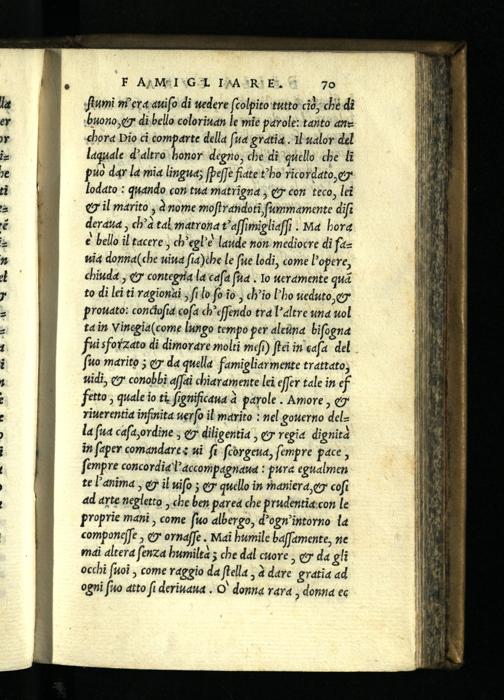 FAMIGLIARE. 70
stumi m'era auiso di uedere scolpito tutto ciò, che di
buono, & di bello coloriuan le mie parole: tanto an=
chora Dio ci comparte della sua gratia. Il ualor del
laquale d'altro honor degno, che di quello che li
può dar la mia lingua; spesse fiate t'ho ricordato, &
lodato: quando con tua matrigna, & con teco, lei
& il marito, à nome mostrandoti, summamente disi
deraua, ch'à tal matrona t'assimigliassi. Ma hora
è bello il tacere, ch'egl'è laude non mediocre di sa=
uia donna (che uiua sia) che le sue lodi, come l'opere,
chiuda, & contegna la casa sua. Io ueramente quā
to di lei ti ragionai, si lo so io, ch'io l'ho ueduto, &
prouato: conciosia cosa ch'essendo tra l'altre una uol
ta in Vinegia (come lungo tempo per alcuna bisogna
fui sforzato di dimorare molti mesi) stei in casa del
suo marito; & da quella famigliarmente trattato,
uidi, & conobbi assai chiaramente lei esser tale in ef
fetto, quale io ti significaua à parole. Amore, &
riuerentia infinita uerso il marito: nel gouerno del=
la sua casa, ordine, & diligentia, & regia dignità
in saper comandare: ui si scorgeua, sempre pace,
sempre concordia l'accompagnaua: pura egualmen
te l'anima, & il uiso; & quello in maniera, & cosi
ad arte negletto, che ben parea che prudentia con le
proprie mani, come suo albergo, d'ogn'intorno la
componesse, & ornasse. Mai humile bassamente, ne
mai altera senza humiltà; che dal cuore, & da gli
occhi suoi, come raggio da stella, à dare gratia ad
ogni suo atto si deriuaua. O' donna rara, donna ec